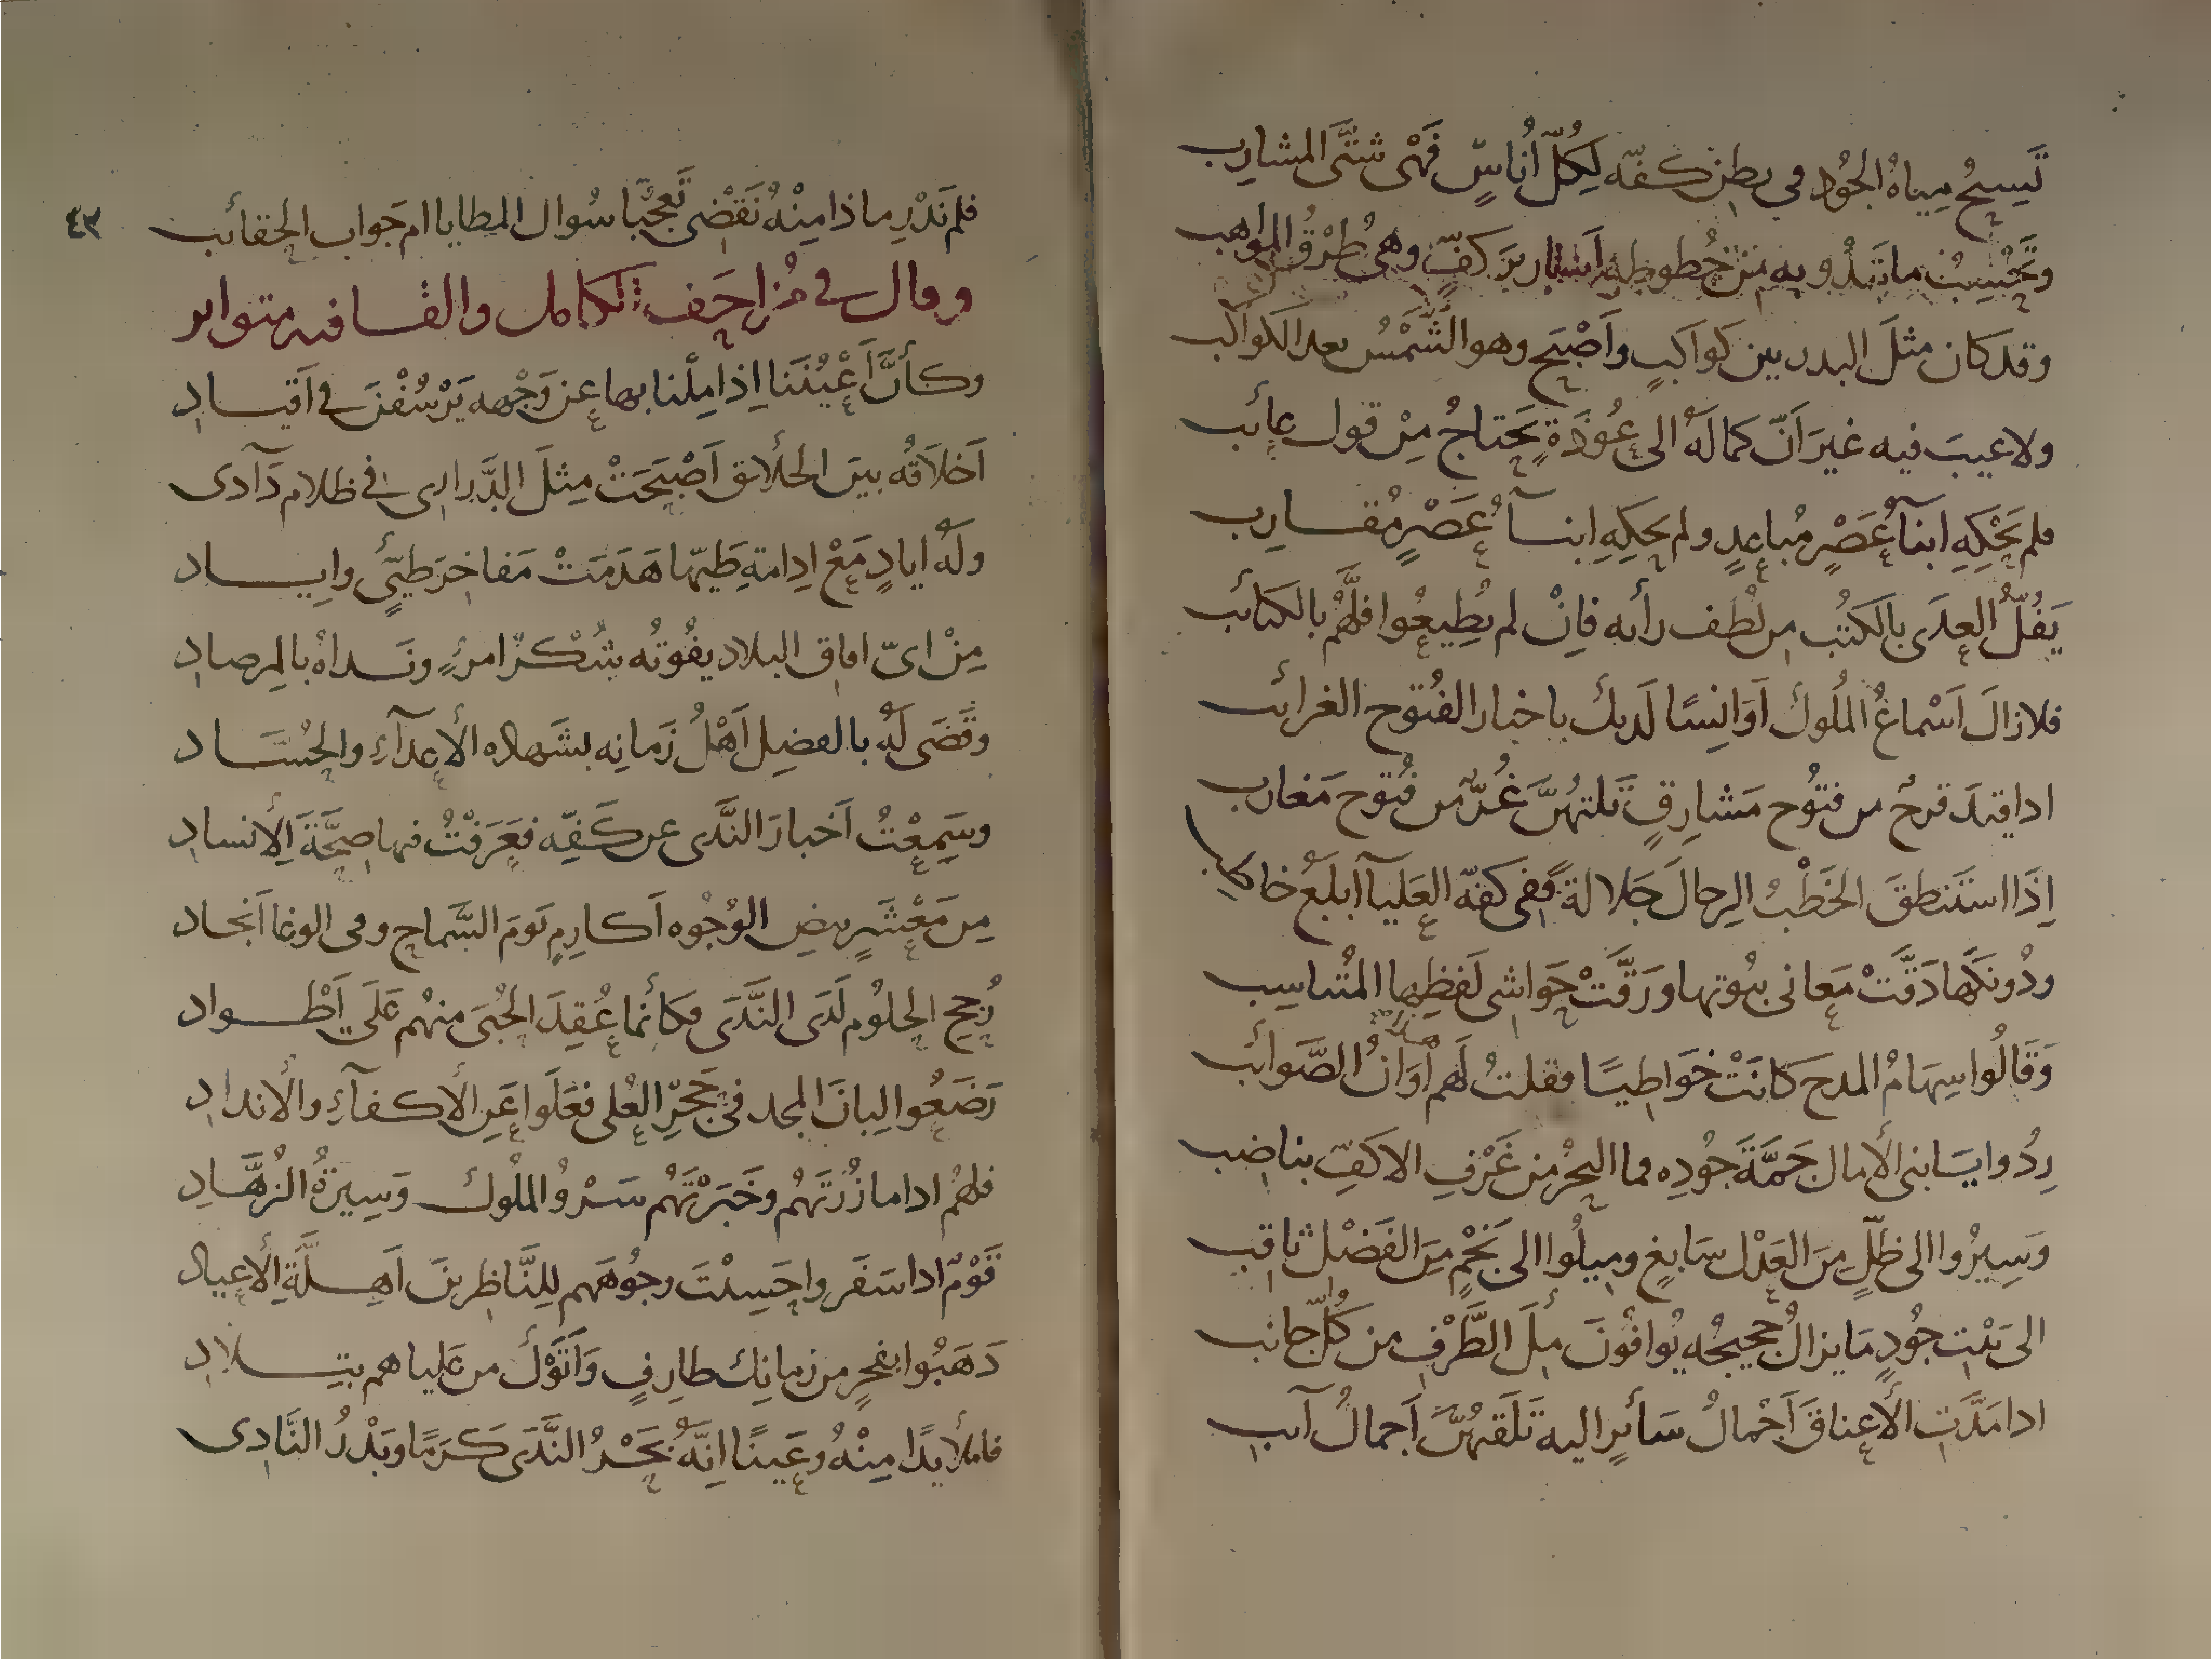 تَسِيحُ مِياهُ الجُود في بطن كفّه لِكُلّ اُناسٍ فَهْى شتَّى المشارِب
وتَحْسِبُ ما تَبْدُو به مِنْ خُطوطِه اَسَارِيرَ كفٍّ وهى طُرْقُ المواهب
وقد كان مثلَ البدر بين كواكبٍ واَصْبَح وهو الشَّمْسُ بعد الكواكب
ولا عيبَ فيه غيرَ اَنّ كمالَهُ الى عُوْذَةٍ يحَتاجُ مِنْ قول عائب
فلم يَحْكِهِ ابنآءُ عَصْرٍ مُباعِدٍ ولم يحكِهِ ابنــآءُ عَصْرٍ مُقــارِب
يَفُلّ العِدَى بالكتُب من لُطف رأيه فإنْ لم يُطِيعُوا فلَّهُمْ بالكتائب
فلا زالَ اَسْماعُ المُلُوك اَوَانِسًا لَديك باخبار الفُتوح الغرائب
اذا قيد قرحٌ من فتُوح مَشارِقٍ تَلتهُنَّ غُرٌّ من فُتوح مَغارب
اِذَا استَنطقَ الخَطْبُ الرِجالَ جَلالةً ففى كفّه العَليآ ابلَغُ خاطب
ودُونكَها دَقَّتْ مَعانى بيُوتها ورَقَّتْ حَواشى لَفظِها المُتناسِب
وَقَالُوا سِهَامُ المدح كانَتْ خَواطِيًا فقلتُ لَهم هذا اَوَانُ الصَّوائب
رِدُوا يَا بنى الأمال جَمَّةَ جُودِه فما البحْرُ من غَرْفِ الاكفّ بناضب
وَسِيرُوا الى ظلٍّ مِنَ العَدْل سَابغٍ ومِيلُوا الى نَجْمٍ مِنَ الفَضْل ثاقب
الى بَيْت جُودٍ مَا يزالُ حجيجُه يُوافُونَ مِلَ الطَّرْفِ من كُلّ جانب
اذا مَدَّتِ الأعناقَ اَجْمالُ سَائرٍ اليه تَلَقتهُنَّ اَجمالُ آئب
٤٣
فلم نَدْرِ ماذا مِنْهُ نَقْضى تَعجّبًا سُوال المطايا ام جَواب الحقائب
وقال فى مُزاحَف الكامل والقــافيه متواتر
وكأنَّ اَعْيُنَنا اِذا مِلْنا بها عن وَجْهه يَرْسُفْنَ فى اَقيــاد
اَخلاقُه بينَ الخلائق اَصْبَحَتْ مِثلَ الدَّرارى فى ظلام دَآدى
ولَهُ ايادٍ مَعْ اِدامَةِ طَيّها هَدَمَتْ مَفاخرَ طيّئٍ وايــاد
مِنْ اىّ افاق البلاد يفُوتُه شُكْرُ امرءٍ ونَــداهُ بالمِرصاد
وقَضَى لَهُ بالفضِل اَهْلُ زَمانِه بشَهاده الأعدآءِ والحُسَّــاد
وسَمِعْتُ اَخبارَ النَّدى عن كَفِّه فعَرَفْتُ فيها صِحَّةَ الأسناد
مِن مَعْشَرٍ بيضِ الوُجُوه اَكارِمٍ يَومَ السَّماح وفى الوغا اَنجاد
رُجحِ الحلُوم لَدَى النَّدَى فكأنما عُقِدَ الحُبَى منهُم عَلَى اَطْــواد
رَضَعُوا لِبانَ المجد فى حَجْرِ العُلى فعَلَوا عَنِ الأكفآءِ والأنداد
فلهُم اذا ما زُرْتَهُم وخَبَرْتَهُم سَرْوُ المُلُوك وَسِيرَةُ الزُهَّــادِ
قَوْمٌ اذا سَفَروا حَسِبْتَ وجُوهَهم لِلنَّاظرينَ اَهِــلَّةَ الأعياد
ذَهَبُوا بفخرٍ من زمانِك طارِفٍ وَاَتَوْك من عَلياهم بتِــلاد
فاملأ يدًا مِنْهُ وعَينًا اِنَّهُ بَحْرُ النَّدَى كَرَمًا وبَدْرُ النَّادِى